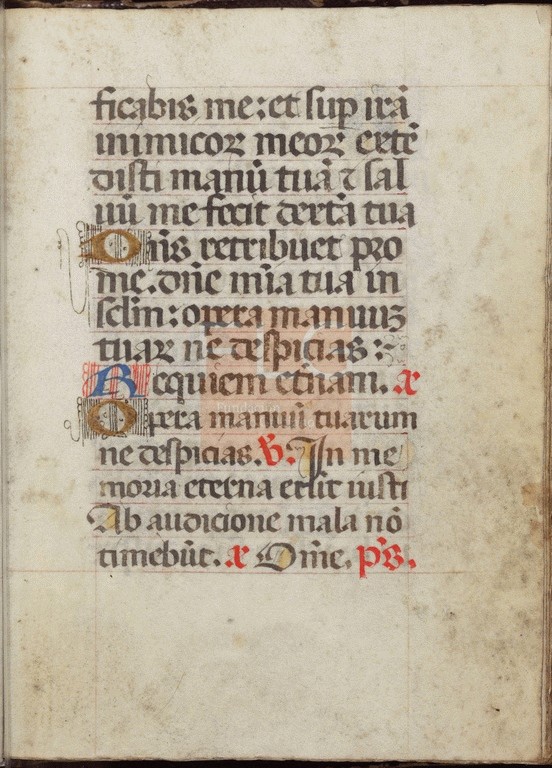 ficabis me: et sup irã
inimicoꝝ meoꝝ extẽ
disti manũ tuã ⁊ sal
uũ me fecit dextã tua
Dñs retribuet pro
me. dñe mĩa tua in
sclm̃: opera manuuʒ
tuaꝝ ne despicias:
Requiem et̃nam. æ
Opera manuũ tuarum
ne despicias. ℣. In me
moria eterna erũt iusti
Ab audicione mala nõ
timebũt. æ Om̃e. p̃s.